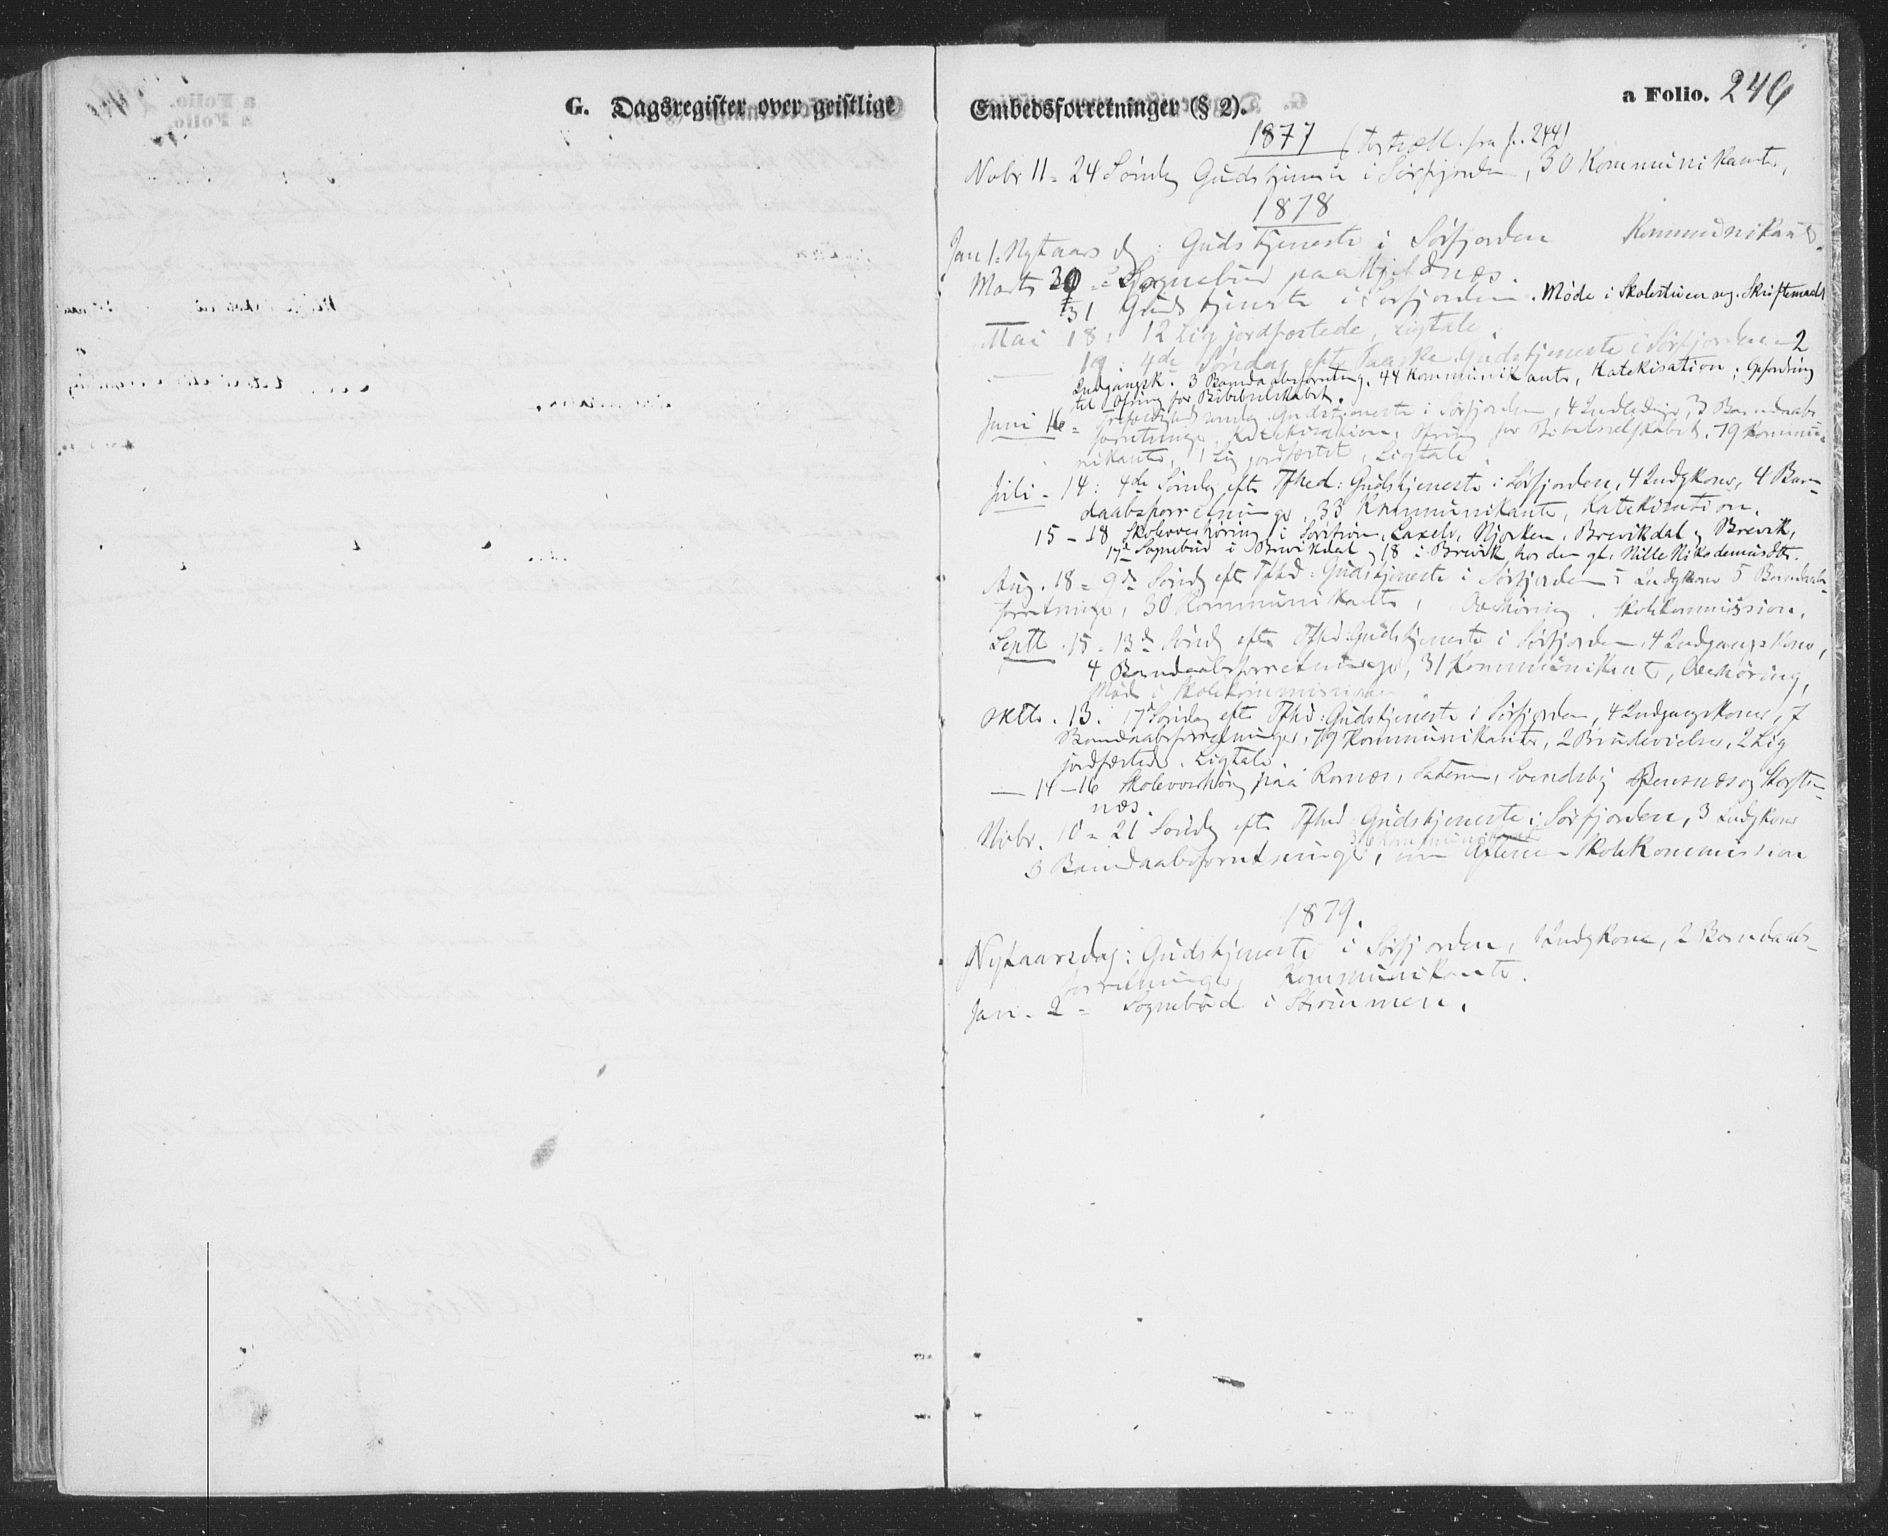 G. Dagsregister over geistlige Embedsforretninger (§ 2).
a Folio. 246
1877 (fra f. 244)
Novbr 11 - 24 Søndag Gudstjeneste i Sørfjorden, 30 Kommunikanter,
1878
Jan 1. Nytaarsd : Gudstjeneste i Sørfjorden Kommunikanter.
Marts 30 - Sognebud paa
31 Gudstjeneste i Sørfjorden. Møde i Skolestuen ang.
Mai 18 : 12 Lig jordfæstede, Ligtale.
19 : 4de Søndag efter Paaske Gudstjeneste i Sørfjorden 2
Indgangsk. 3 Barndaabsforretning. 44 Kommunikanter, Katekisation; Opfordring
til Ofring for Bibelselskabet.
Juni 16 = Trefoldighedssøndag Gudstjeneste i Sørfjorden, 3 Barndaabs
forretninger, Katekisation, Ofring for Bibelselskabet, 79 Kommu-
nikanter, 1 Lig jordfæstet, Ligtale.
Juli - 14 : 4de Søndag efter Tfhed : Gudstjeneste i Sørfjorden, 4 Indgkoner, 4 Barn-
daabsforretninger, 33 Kommunikanter, Katekisation.
15 - 18 Skoleoverhøring i Laxelv, Njorken, Brevikdal og Brevik,
17de Sognebud i Brevikdal og 18 i Brevik hos den gl. Nille Nikodemusdtr.
Aug. 18 - 9de Søndag efter Tfhd : Gudstjeneste i Sørfjorden 5 Indgkoner 5 Barndaabs-
forretninger, 30 Kommunikanter, Overhøring, Skolekommission.
Septb. 15 - 13de Søndag efter Tfhd : Gudstjeneste i Sørfjorden, 4 Indgangskoner,
4 Barndaabsforretninger, 31 Kommunikanter, Overhøring,
Møde i Skolekommissionen
Oktb. 13. 17de Søndag efter Tfhd : Gudstjeneste i Sørfjorden, 4 Indgangskoner, 7
Barndaabsforretninger, 79 Kommunikanter, 2 Brudevielser, 2 Lig
jordfæstede. Ligtale.
— 14 - 16 Skoleoverhøring paa Ramnæs, Svendsby og Storste-
næs.
Novbr. 10 - 21 Søndag efter Tfhed : Gudstjeneste i Sørfjorden, 3 Indgkoner
36 Kommunikanter
3 Barndaabsforretninger, om Aftenen Skolekommission
1879.
Nytaarsdag : Gudstjeneste i Sørfjorden, 1 Indgkone, 2 Barndaabs-
forretninger, Kommunikanter.
Jan. 2 - Sognebud i Strømmen.